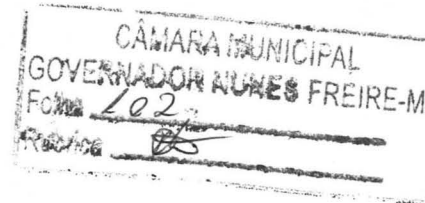 CÂMARA MUNICIPAL
GOVERNADOR NUNES FREIRE-M
Folha 102
Rubrica